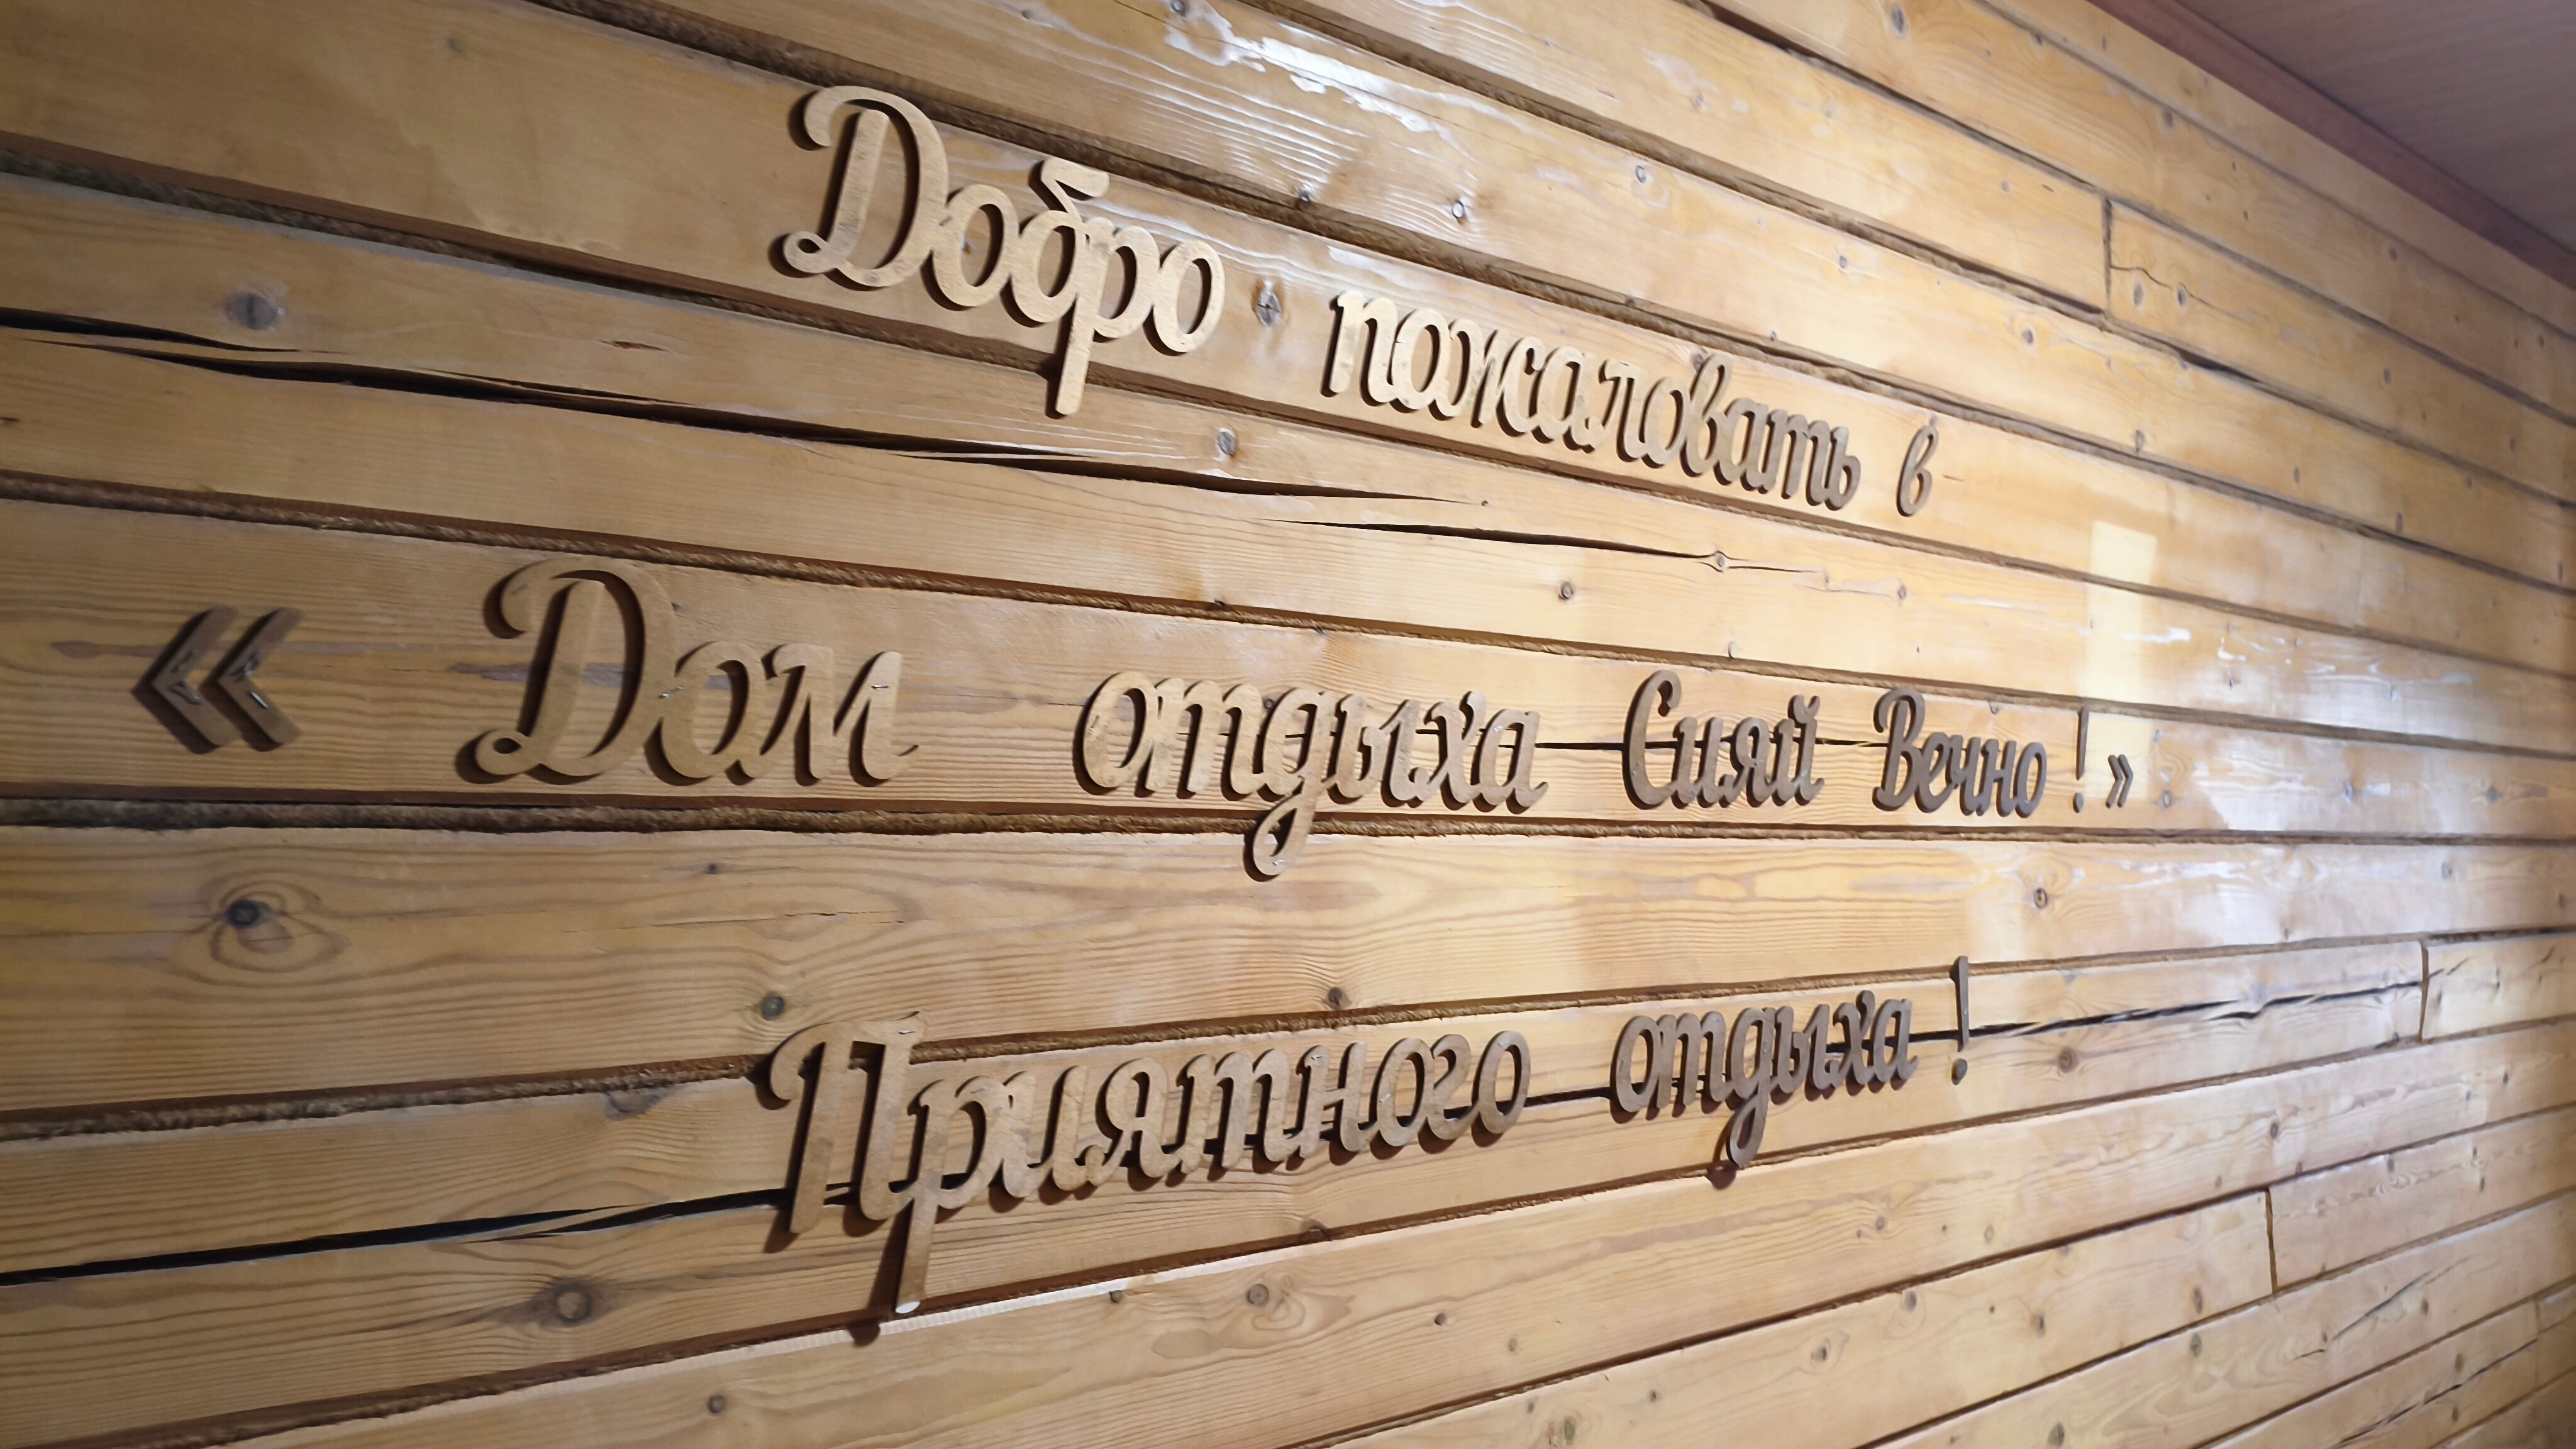 Добро пожаловать в
« Дом отдыха Сияй Вечно ! »
Приятного отдыха !